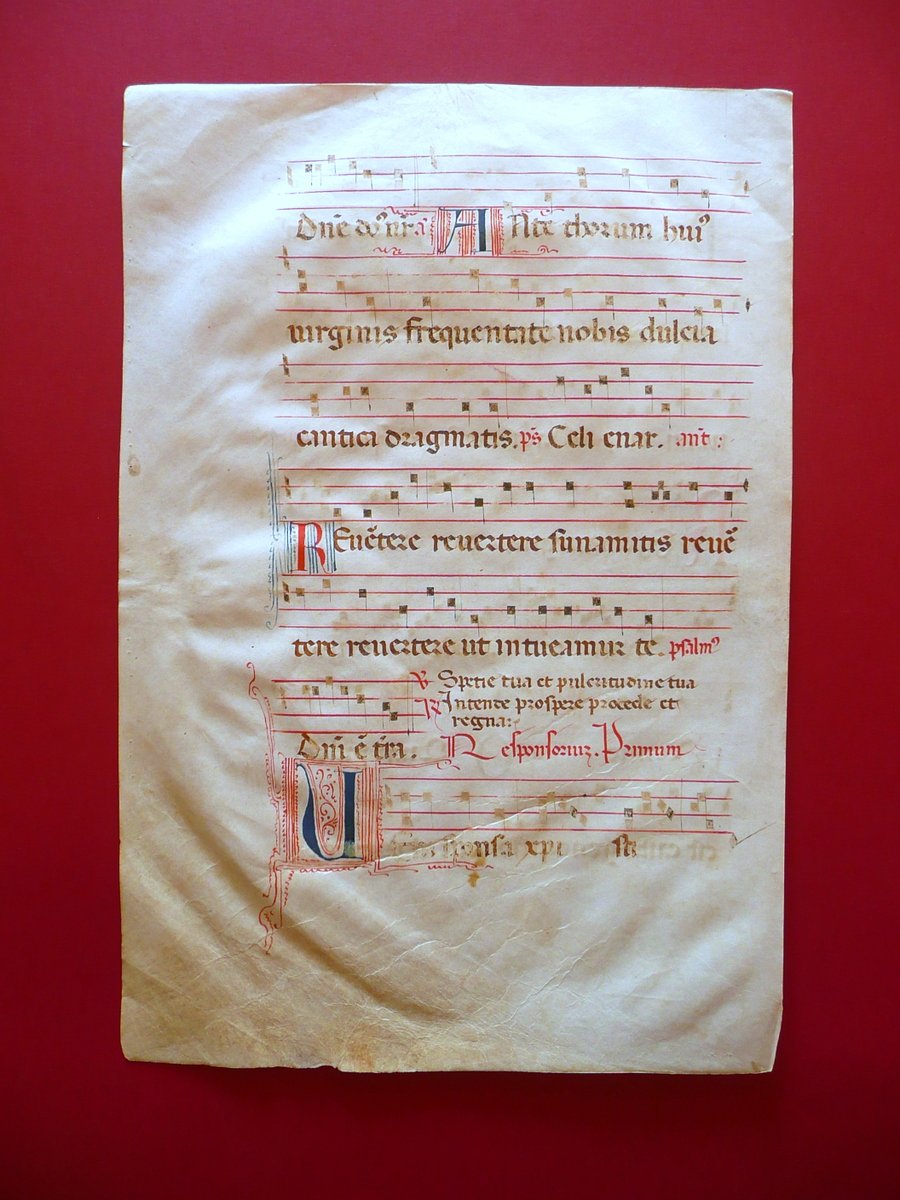 Dn̄e do⁹ nr̄a Ante thorum hui⁹
uirginis frequentate nobis dulcia
cantica dragmatis. p̄s Celi enar. ant̄:
Reuētere reuertere sunamitis reuē
tere reuertere ut intueamur te. psalm⁹
V Spetie tua et pulcritudine tua
R Intende prospere procede et
regna:
Dn̄i ē t̄ra. Responsoriuȝ. Primum
sponsa xpi